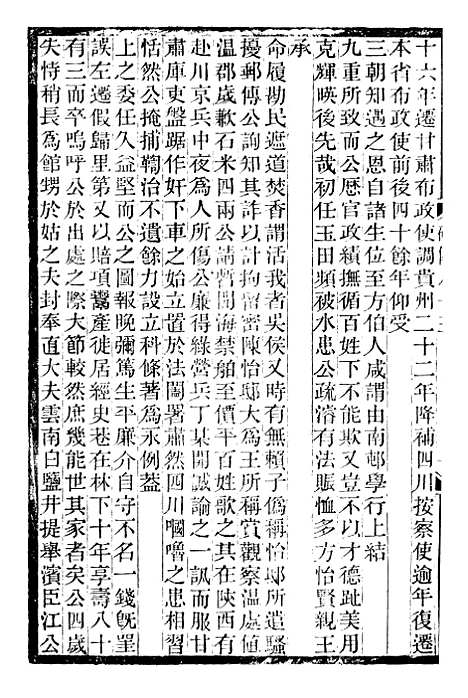 十六年遷甘肅布政使調貴州二十二年降補四川按察使逾年復遷
本省布政使前後四十餘年仰受
三朝知遇之恩自諸生位至方伯人咸謂由南邨學行上結
九重所致而公歷官政績循循百姓下不能欺又豈不以才德趾美用
克輝暎後先哉初任玉田頻被水患公疏溶有法賑恤多方怡賢親王
承
命履勘民遮道焚香謂活我者吳侯又時有無賴子偽稱怡邸所遣騷
擾郵傳公詢知其詐以計拘留密陳怡邸大為王所稱賞觀察温處值
温郡歲歉石米四兩公請暫開海禁舶至價平百姓歌之其在陜西有
赴川京兵中夜為人所傷公廉得綠營兵丁某聞誠諭之一訊而服甘
肅庫吏盤踞作奸下車之始立置於法闔署肅然四川嘓嚕之患相習
恬然公掩捕鞫治不遺餘力設立科條著為永例葢
上之委任久益堅而公之圖報晚彌篤生平廉介自守不名一錢旣罣
誤左遷假歸里第又以賠項鬻產徙居經史巷在林下十年享壽八十
有三而卒嗚呼公於出處之際大節較然庶幾能世其家者矣公四歲
失恃稍長為館甥於姑之夫封奉直大夫雲南白鹽井提舉濱臣江公